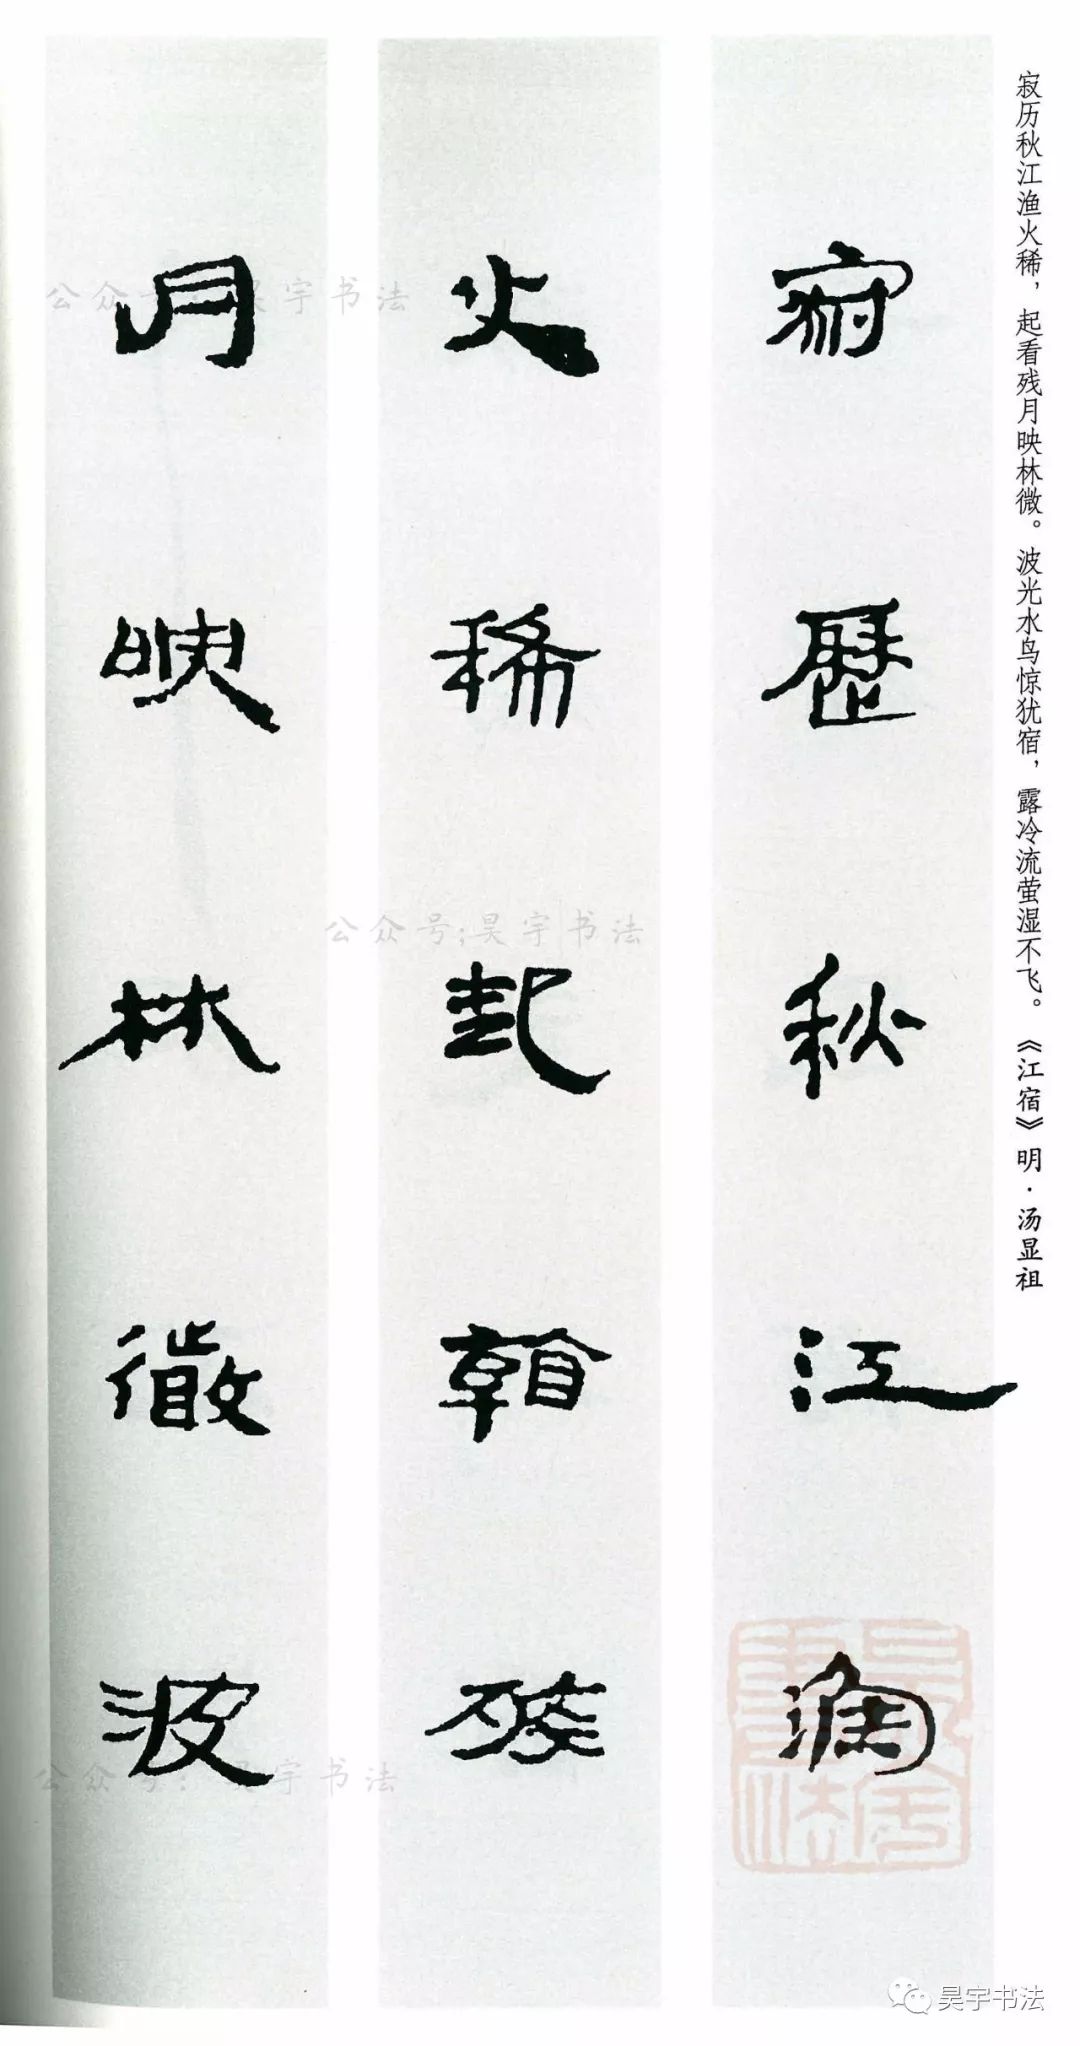 寂历秋江渔火稀，起看残月映林微。波光水鸟惊犹宿，露冷流萤湿不飞。《江宿》明·汤显祖
寂歷秋江漁
火稀起看殘
月映林微波
公众号:昊宇书法
公众号:昊宇书法
公众号:昊宇书法
昊宇书法
昊宇书法